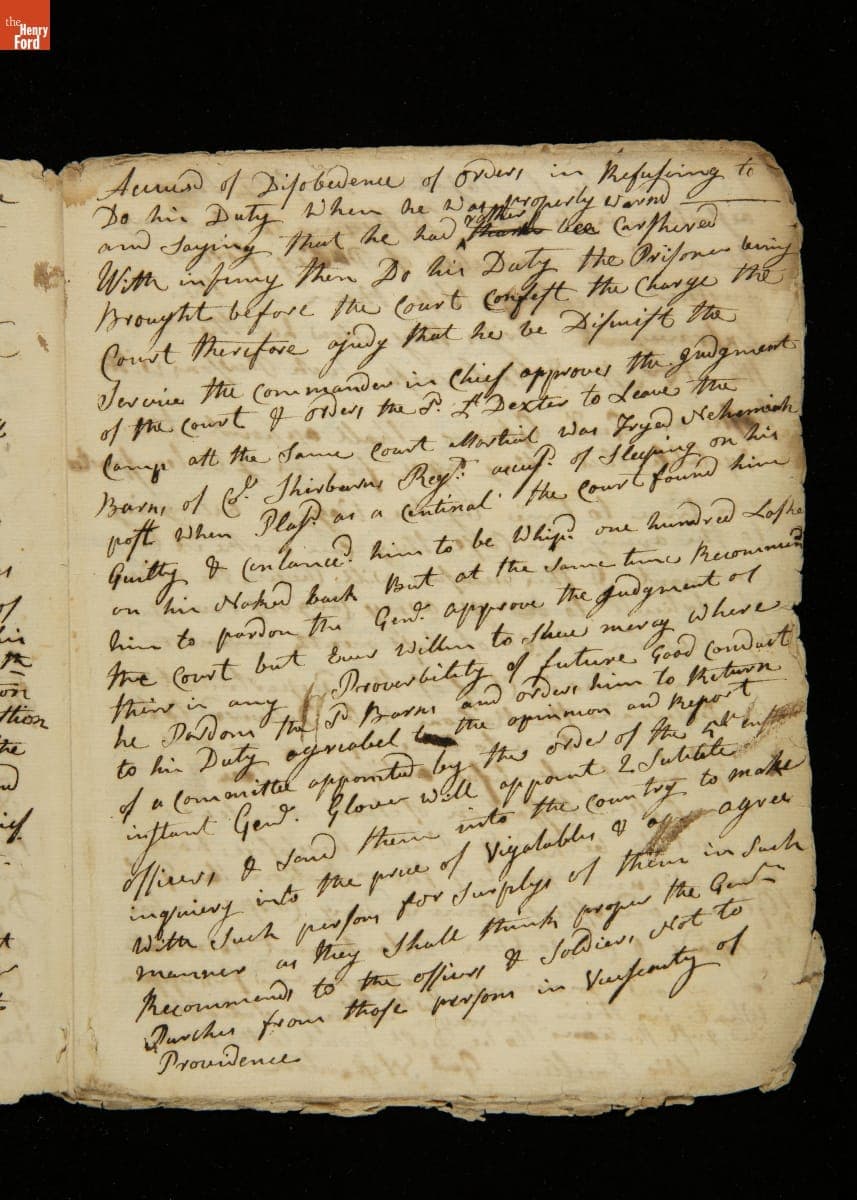 the
Henry
Ford
Accused of Disobedence of orders in Refuseing to
Do his Duty When he Was properly Warnd
and Saying that he had rather bee Carshered
With infimy then Do his Duty the Prisoner being
Brought before the Court Confest the Charge the
Court therefore ajudg that he be Dismist the
Service the commander in Chief approves the Judgment
of the court & orders the Sd. Lt Dexter to Leave the
Camp att the Same Court Martial was Tryed Nehemiah
Barns of Col. Shirburns Regt. accusd. of Sleeping on his
post When Plasd. as a Centinal the Court found him
Guilty & Centanced. him to be Whipd. one hundred Lashe
on his Naked back But at the Same time Recommend
him to pardon the Genl. approve the Judgment of
the Court but Ever Willin to Shew mercy Where
thire is any Proverbility of future Good Conduct
he Pardons the Sd Barns and orders him to Return
to his Duty agreabel to the opinnion and Report
of a Committee appointed by the order of the 5th
instant Genl. Glover Will appoint 2 Sutible
officers & Send them into the Country to make
inquiery into the price of Vigatables & agree
With Such persons for Surplys of them in Such
manner as they Shall think proper the Genl
Recommends to the officers & Soldiers Not to
Purches from those persons in Versenity of
Providence